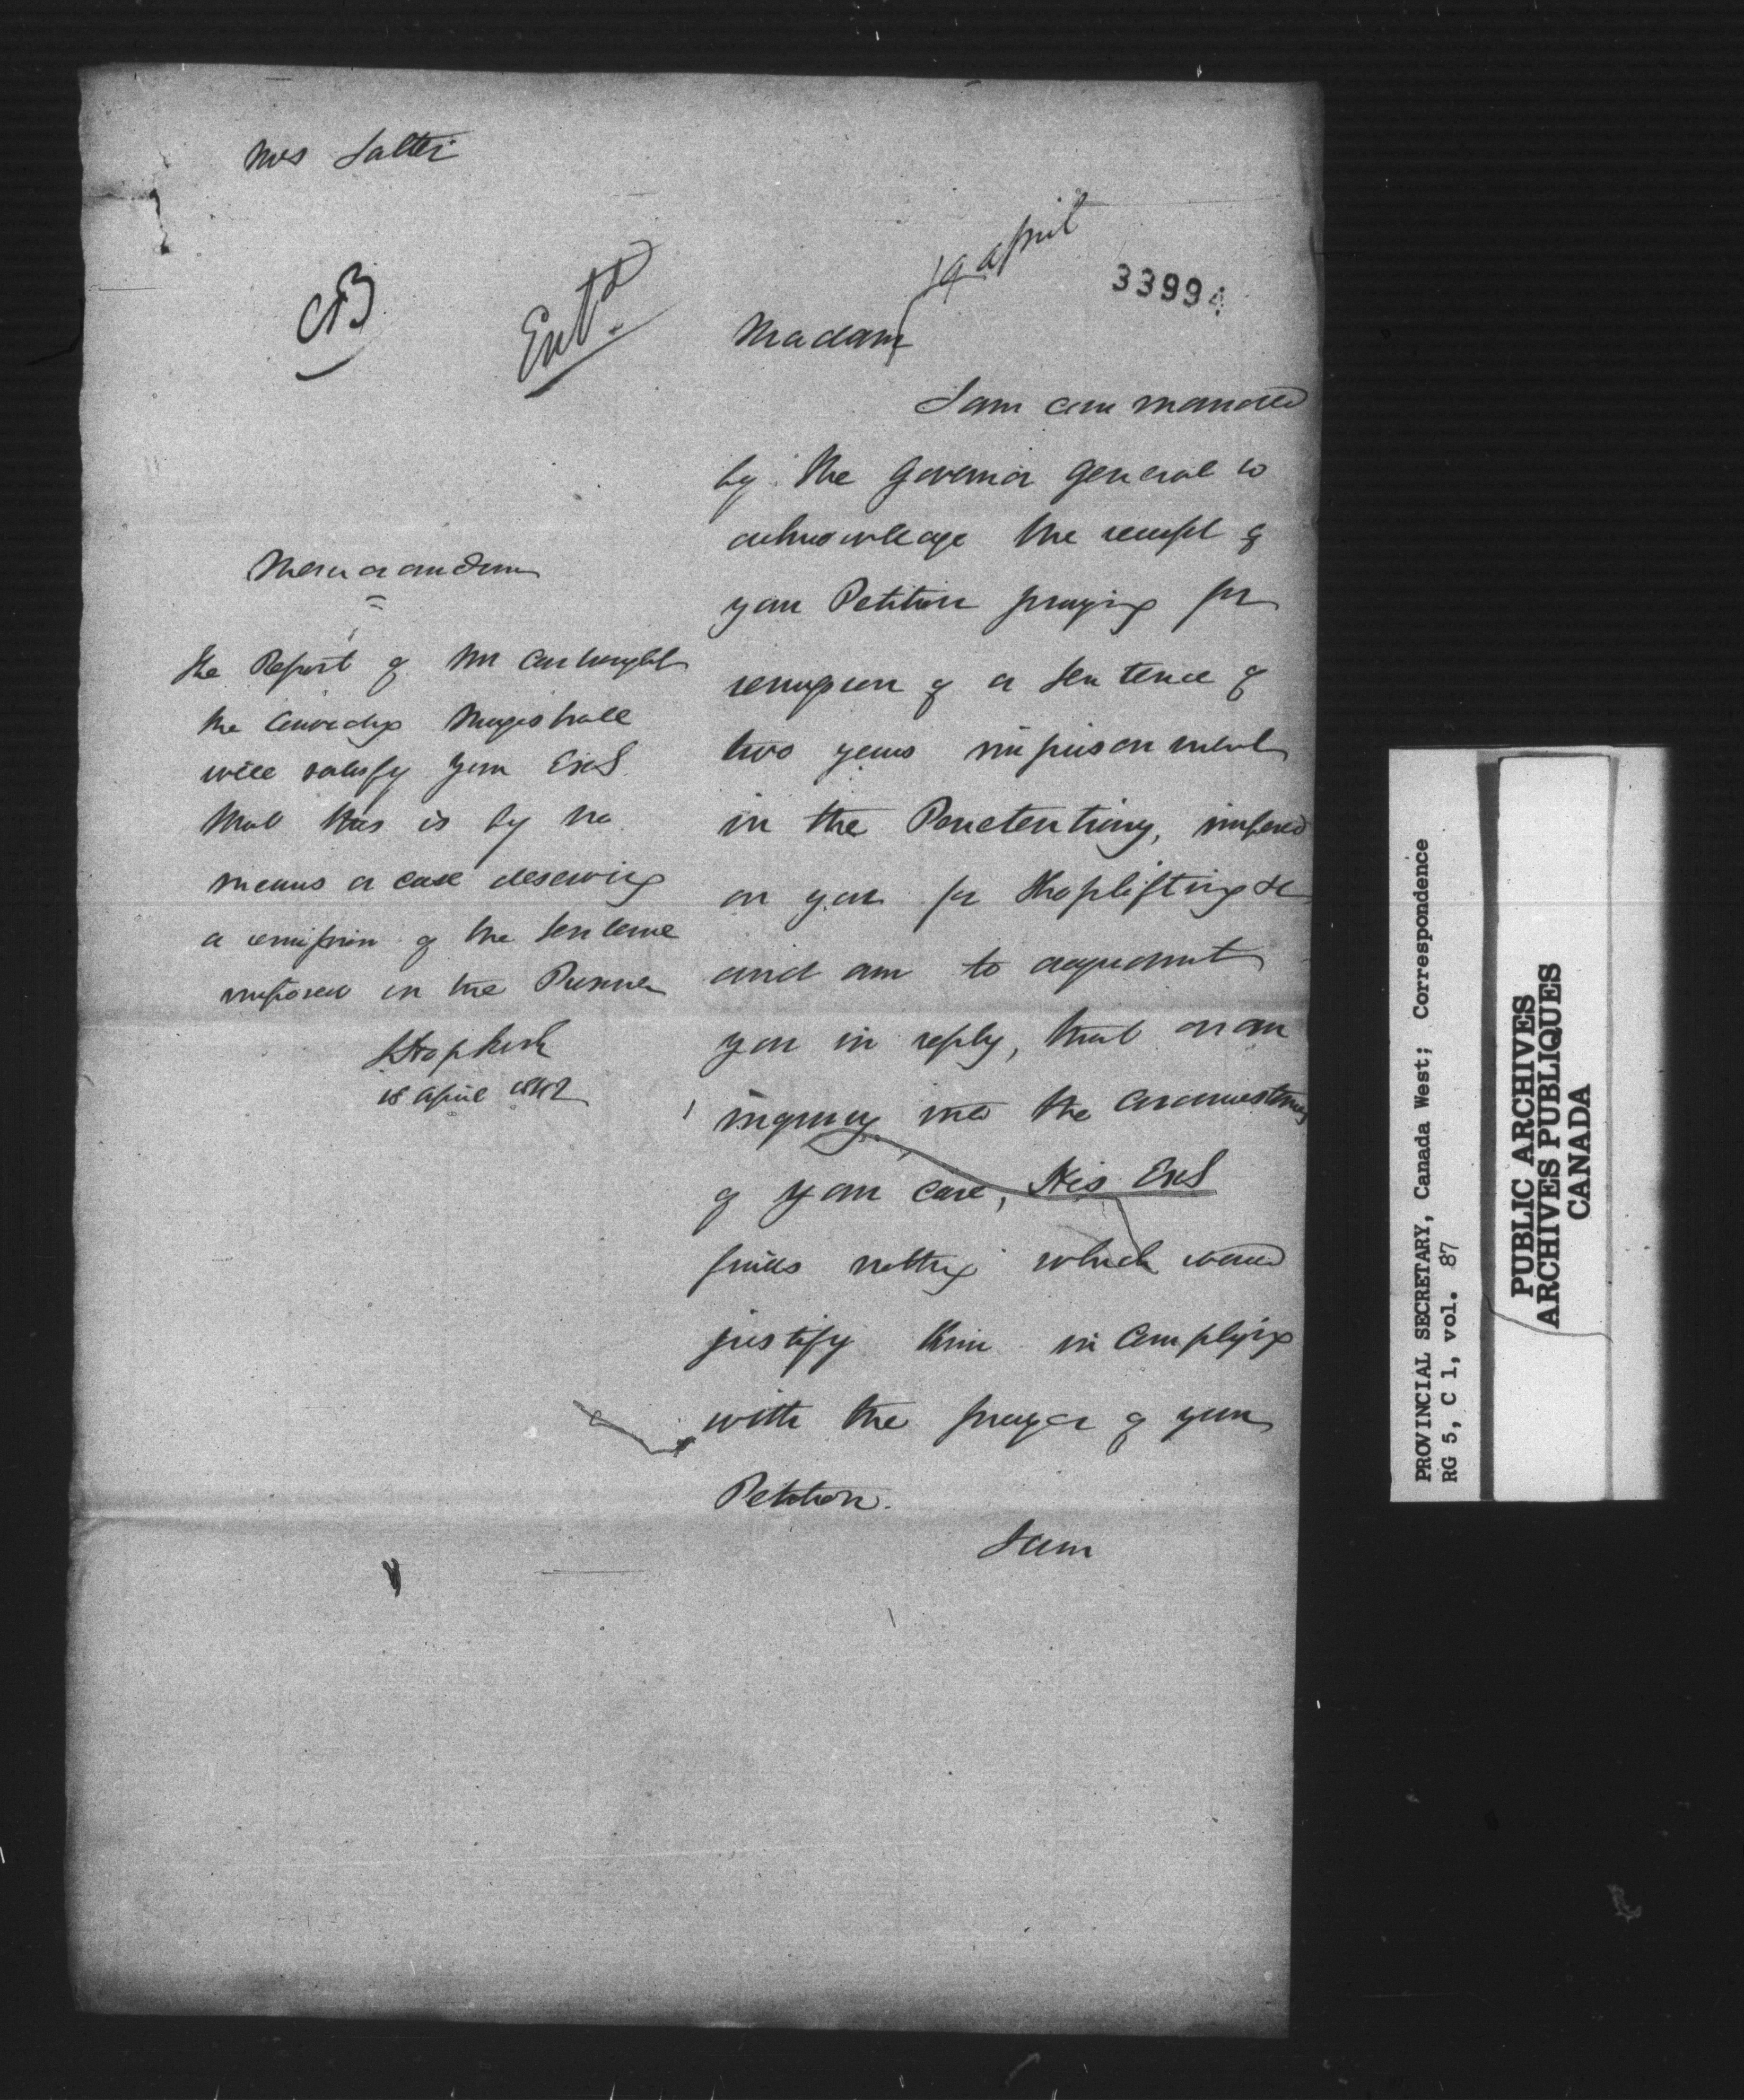 Mrs Salter
CB
Entd.
19 April
33994
Memorandum
The Report of Mr Cartwright
the Convicting Magistrate
will satisfy Your Excl
that this is by no
means a case deserving
a remission of the Sentence
imposed on the Prisoner
J Hopkirk
18 April 1842
Madam
I am commanded
by the Governor General to
acknowledge the receipt of
your Petition praying for
remission of a Sentence of
two years imprisonment
in the Penetentiary, imposed
on you for Shoplifting &c
and am to acquaint
you in reply, that on an
inquiry into the Circumstances
of your Case, His Excl
finds nothing which would
justify him in Complying
with the prayer of your
Petition.
I am
PROVINCIAL SECRETARY, Canada West; Correspondence
RG 5, C 1, vol. 87
PUBLIC ARCHIVES
ARCHIVES PUBLIQUES
CANADA